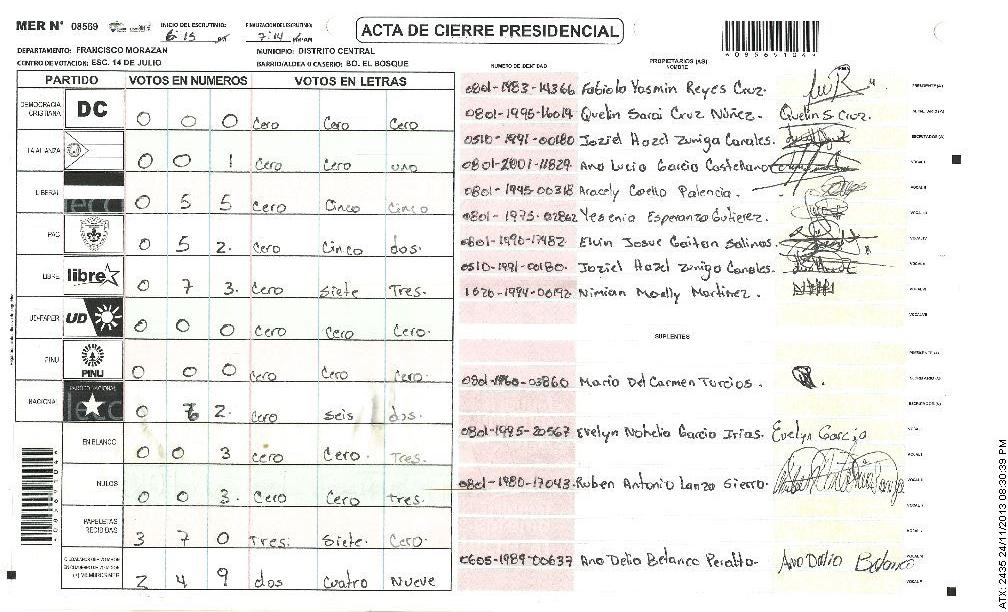 MER N° 08569
INICIO DEL ESCRUTINIO:
6:15 pm
FINALIZACION DEL ESCRUTINIO:
7:14
ACTA DE CIERRE PRESIDENCIAL
DEPARTAMENTO: FRANCISCO MORAZAN
MUNICIPIO: DISTRITO CENTRAL
CENTRO DE VOTACION: ESC. 14 DE JULIO
BARRIO/ALDEA O CASERIO: BO. EL BOSQUE
PARTIDO VOTOS EN NUMEROS VOTOS EN LETRAS
DEMOCRACIA CRISTIANA DC 0 0 0 Cero Cero Cero
LA ALIANZA 0 0 1 Cero Cero uno
LIBERAL 0 5 5 Cero Cinco Cinco
PAC 0 5 2. Cero Cinco dos.
LIBRE libre 0 7 3. Cero Siete Tres.
UD-FAPER UD 0 0 0 Cero Cero Cero.
PINU PINU 0 0 0 Cero Cero Cero.
NACIONAL PARTIDO NACIONAL 0 6 2. Cero Seis dos.
EN BLANCO 0 0 3 Cero Cero. Tres.
NULOS 0 0 3. Cero Cero Tres.
PAPELETAS RECIBIDAS 3 7 0 Tres. Siete. Cero.
2 4 9 dos Cuatro Nueve
NUMERO DE IDENTIDAD
PROPIETARIOS (AS)
NOMBRE
FIRMA
0801-1983-14366 Fabiola Yasmin Reyes Cruz. PRESIDENTE (A)
0801-1995-16019 Quelin Sarai Cruz Núñez. Quelin S. Cruz.
0510-1991-00180 Joziel Hazel Zuniga Canales. ESCRUTADOR (A)
0801-2001-11829 Ana Lucia Garcia Castellano VOCAL I
0801-1945-00318 Aracely Coello Palencia. VOCAL II
0801-1975-02862 Yesenia Esperanza Gutierez. VOCAL III
0801-1990-17482 Elvin Josue Gaitan Salinas. VOCAL IV
0510-1991-00180. Joziel Hazel Zuniga Canales. VOCAL V
1626-1994-00192 Nimian Maelly Martinez. VOCAL VI
VOCAL VII
SUPLENTES
PRESIDENTE (A)
0801-1960-03860 Maria Del Carmen Turcios. SECRETARIO (A)
ESCRUTADOR (A)
0801-1995-20567 Evelyn Nohelia Garcia Irias. Evelyn Garcia
0801-1980-17043. Ruben Antonio Lanza Sierra.
0605-1989-00637 Ana Delia Betanco Peralta. Ana Dalia Betanco
ATX: 2435 24/11/2013 08:30:39 PM